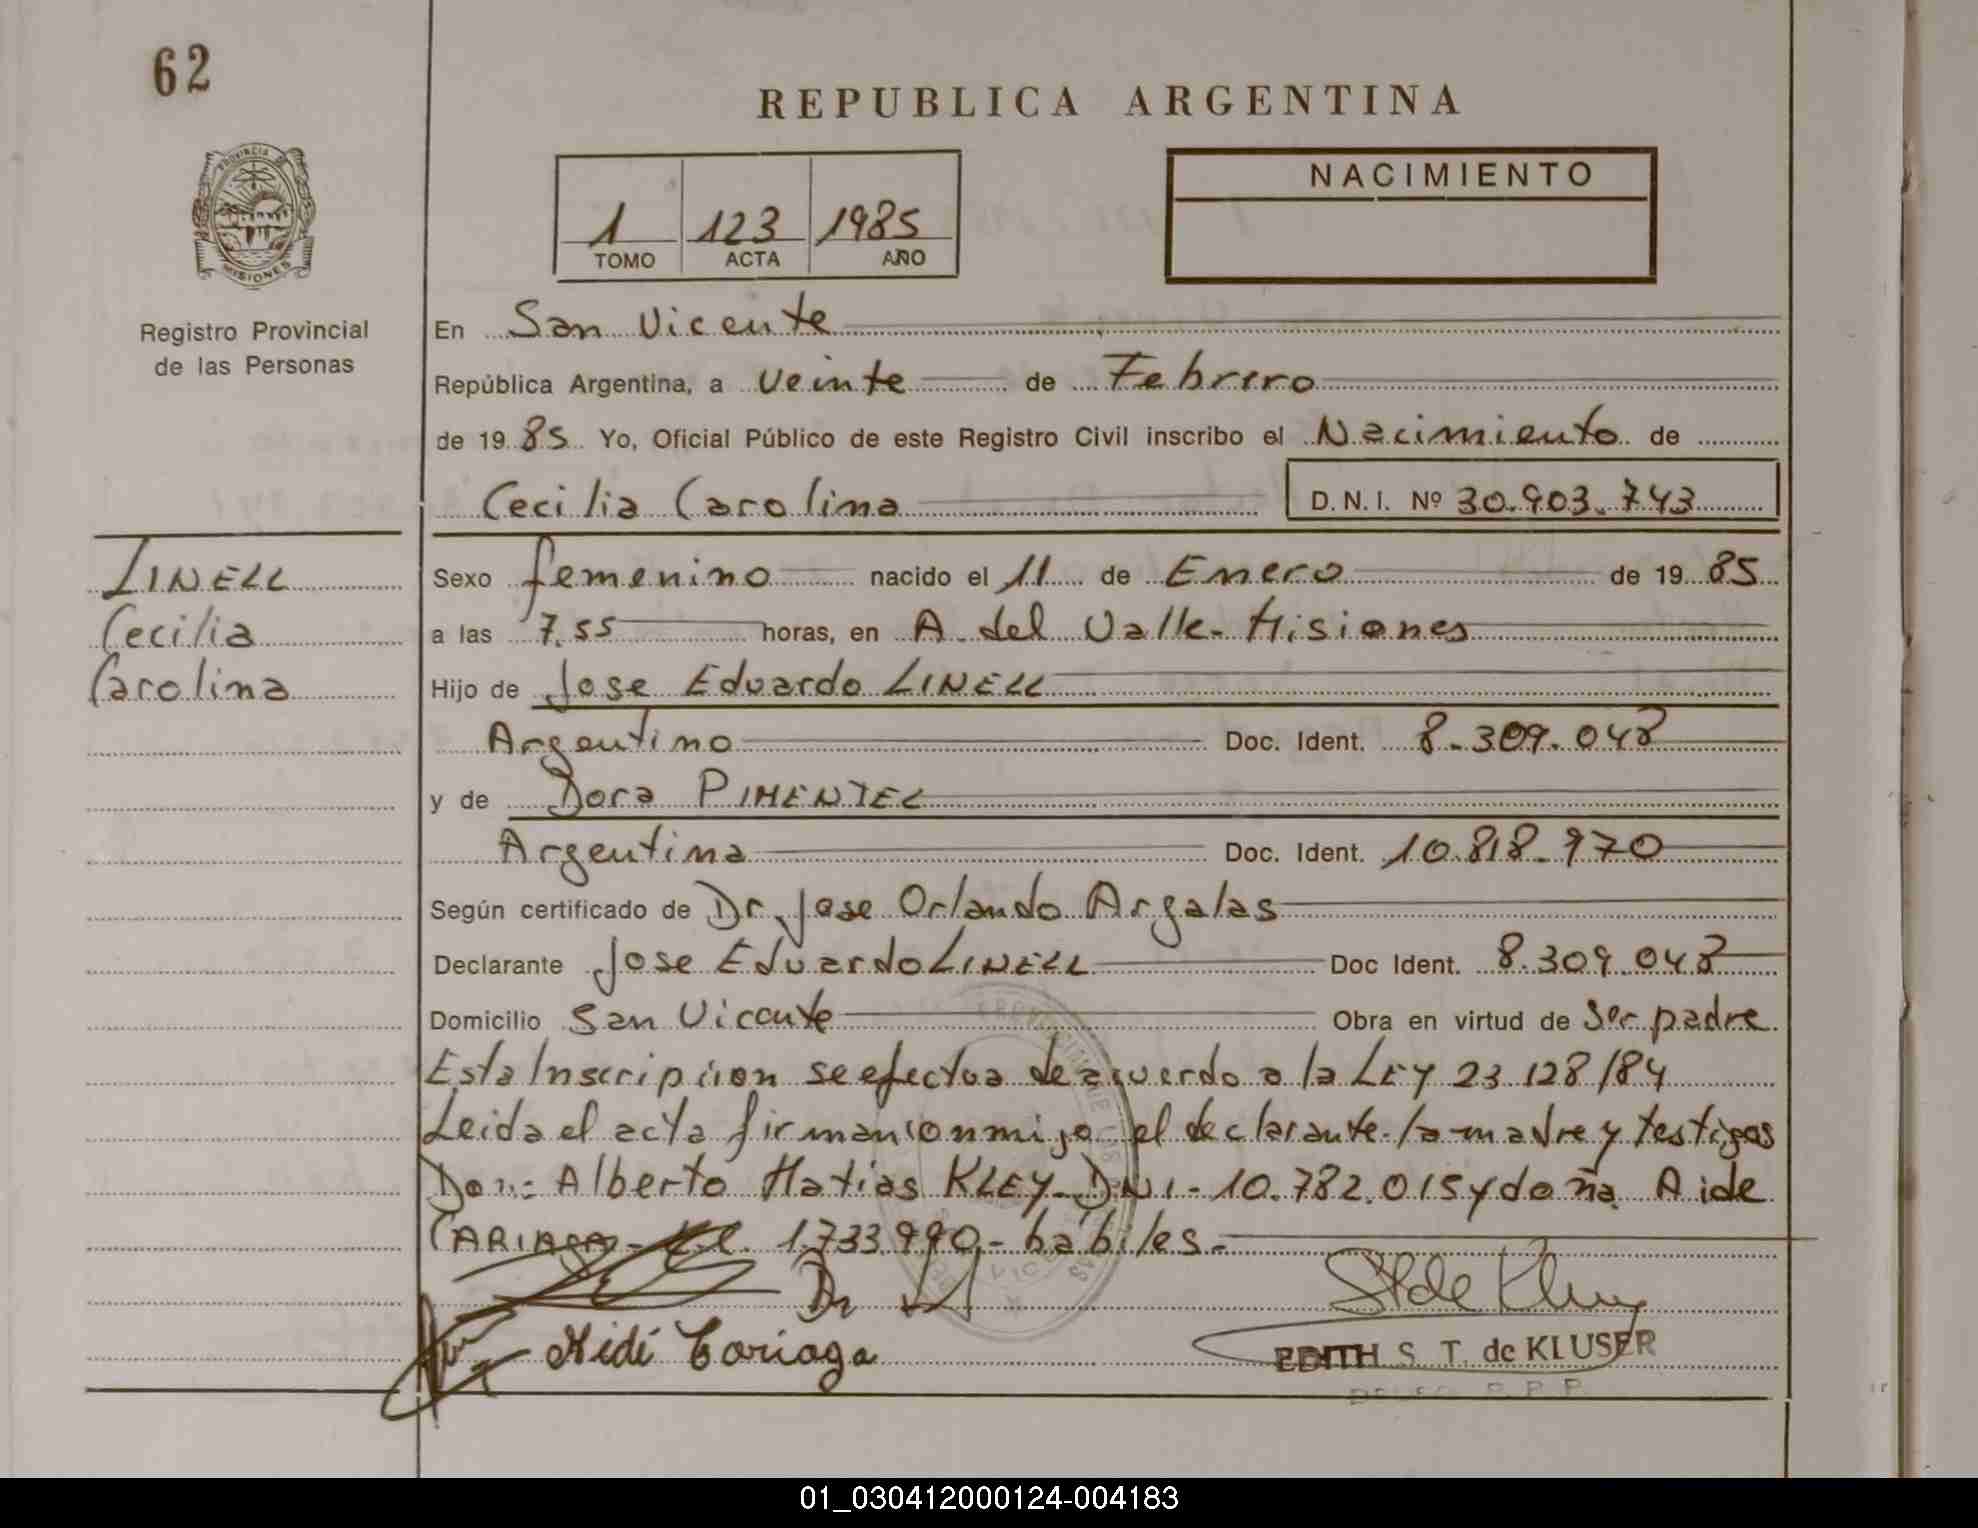 62
REPUBLICA ARGENTINA
PROVINCIA DE
MISIONES
Registro Provincial
de las Personas
1 123 1985
TOMO ACTA AÑO
NACIMIENTO
En San Vicente
República Argentina, a Veinte de Febrero
de 19 85 Yo, Oficial Público de este Registro Civil inscribo el Nacimiento de
Cecilia Carolina D.N.I. Nº 30.903.743
LINELL
Cecilia
Carolina
Sexo femenino nacido el 11 de Enero de 19 85
a las 7.55 horas, en A. del Valle- Misiones
Hijo de Jose Eduardo LINELL
Argentino Doc. Ident. 8.309.048
y de Dora PIMENTEL
Argentina Doc. Ident. 10.818.970
Según certificado de Dr. Jose Orlando Argalas
Declarante Jose Eduardo LINELL Doc Ident. 8.309.048
Domicilio San Vicente Obra en virtud de Ser padre
Esta Inscripcion se efectua de acuerdo a la LEY 23.128/84
Leida el acta firman conmigo el declarante- la madre y testigos
Don: Alberto Matias KLEY- DNI- 10.782.015 y doña Aide
CARIAGA- L.C. 1.733.990,- hábiles.-
Aidé Cariaga
EDITH S. T. de KLUSER
01_030412000124-004183